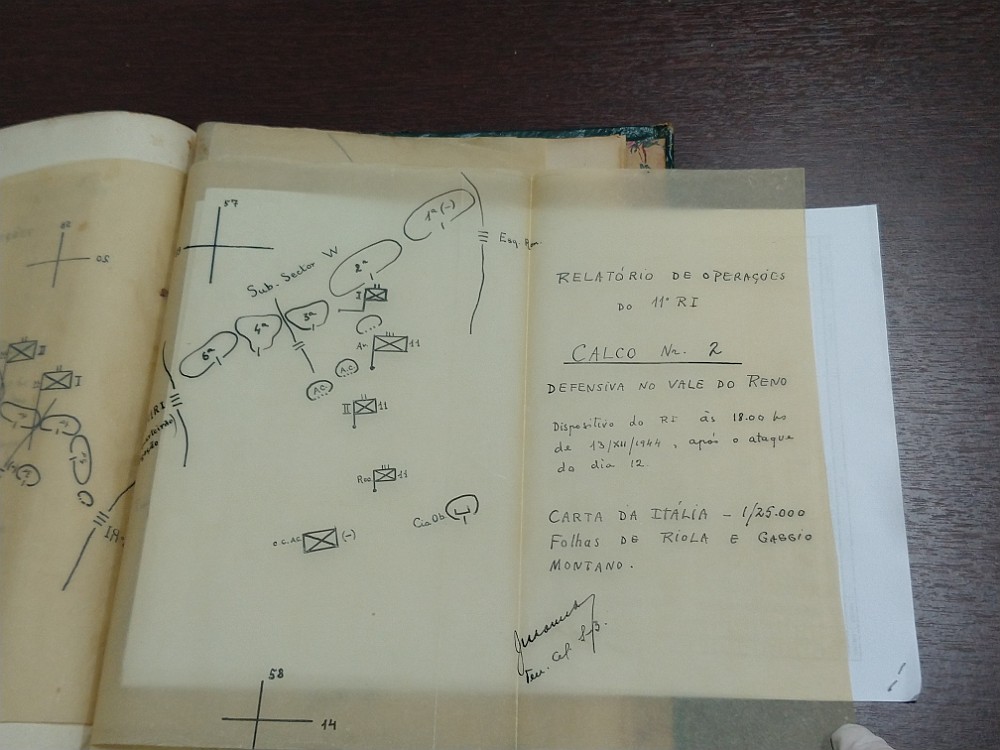 57
1ª (-)
Sub. Sector W
2ª
I
3ª
4ª
6ª
11
A.C
A.C
II
11
11
Cia Ob
(-)
58
14
RELATÓRIO DE OPERAÇÕES
DO 11º RI
CALCO Nr. 2
DEFENSIVA NO VALE DO RENO
Dispositivo do RI às 18.00 hs
de 13/XII/1944, após o ataque
do dia 12.
CARTA DA ITÁLIA - 1/25.000
Folhas DE RIOLA E GAGGIO
MONTANO.
Ten. Cel S/3.
II
I